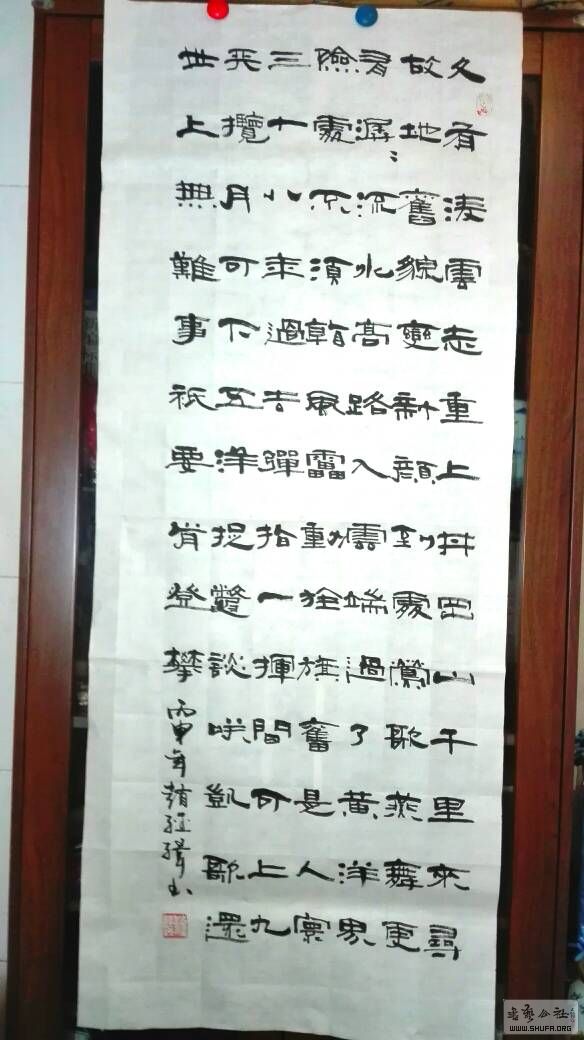 久有凌雲志重上井岡山千里來尋
故地舊貌變新顏到處鶯歌燕舞更
有潺〻流水高路入雲端過了黄洋界
險處不須看風雷動旌旗奮是人寰
三十八年過去彈指一揮間可上九
天攬月可下五洋捉鱉談笑凱歌還
世上無難事衹要肯登攀
丙申年趙经书
书艺公社
WWW.SHUFA.ORG